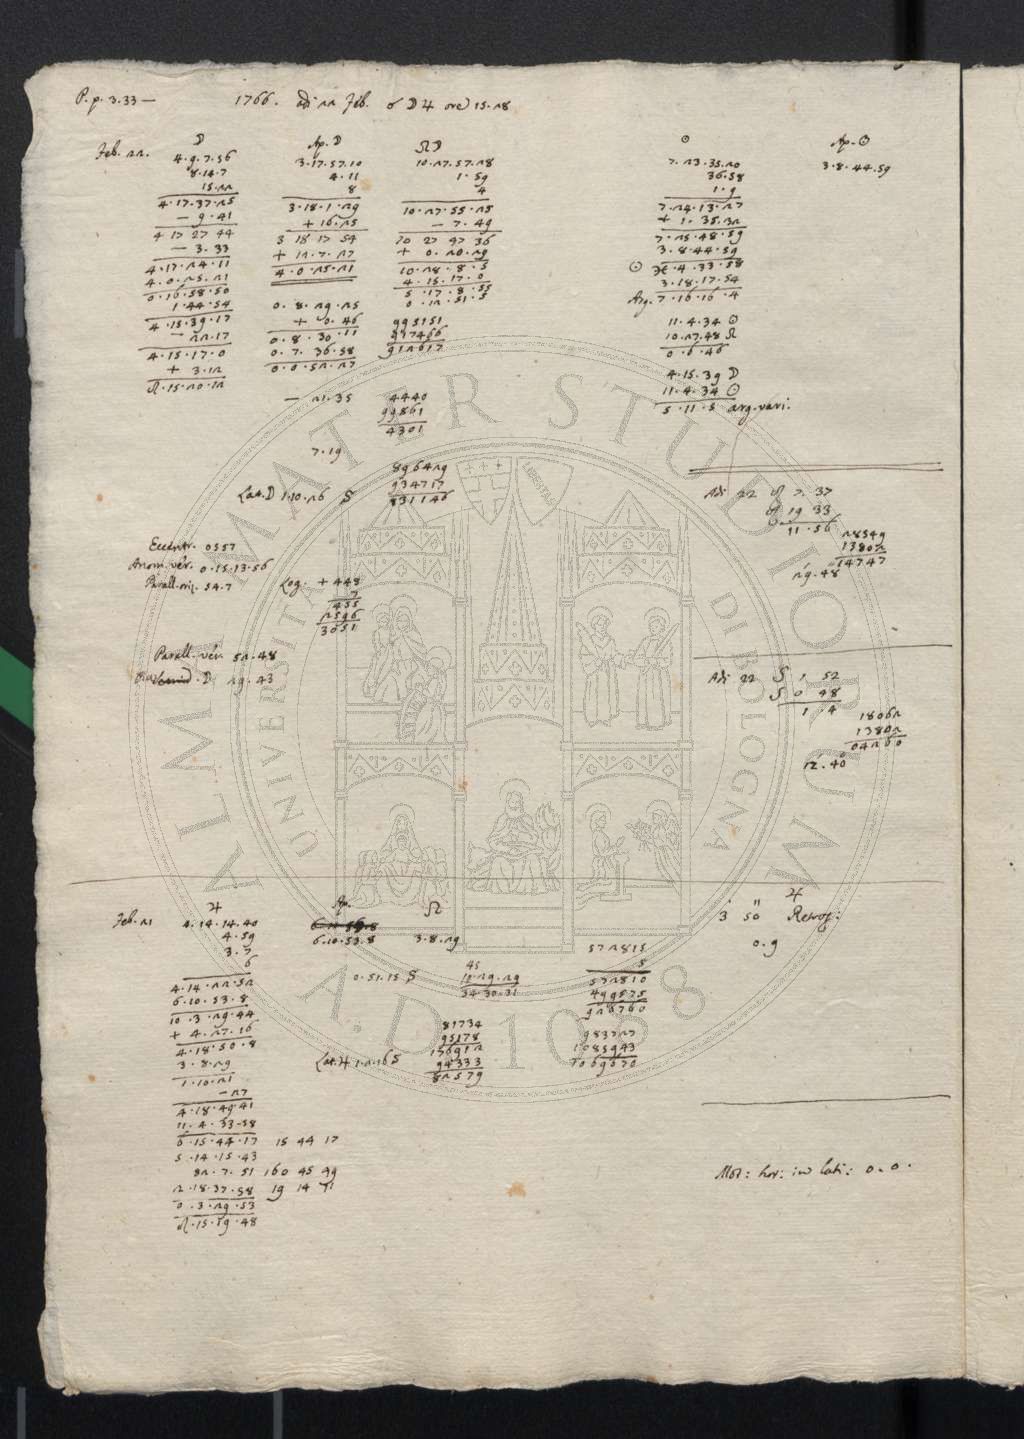 P. p. 3.33 — 1766. adi 22 Feb. ☌ ☽ ♃ ore 15.28
Feb. 22.
☽
4.9.7.56
8.14.7
15.22
4.17.37.25
— 9.41
4 17 27 44
— 3.33
4.17.24.11
4.0.25.21
0.16.58.50
1.44.54
4.15.39.17
— 22.17
4.15.17.0
+ 3.12
♌.15.20.12
Ap. ☽
3.17.57.10
4.11
8
3.18.1.29
+ 16.25
3 18 17 54
+ 12.7.27
4.0.25.21
0.8.29.25
+ 0.46
0.8.30.11
0.7.36.58
0.0.52.27
— 21.35
7.19
☊ ☽
10.27.57.28
1.59
4
10.27.55.25
— 7.49
10 27 47 36
+ 0.20.29
10.28.8.5
4.15.17.0
5.17.8.55
0.12.51.5
995151
917466
912617
4440
99861
4301
☉
7.23.35.20
36.58
1.9
7.24.13.27
+ 1.35.32
7.25.48.59
3.8.44.59
☉ ♓.4.33.58
3.18.17.54
Arg. 7.16.16.4
11.4.34 ☉
10.27.48 ☊
0.6.46
4.15.39 ☽
11.4.34 ☉
5.11.5 arg. vari.
Ap. ☉
3.8.44.59
Lat. ☽ 1.10.26 S
896429
934717
831146
Adi 22 ☍ 7.37
☍ 19 33
11.56
28549
13802
14747
29.48
Eccentr. 0557
Anom. ver. 0.15.13.56
Parall. oriz. 54.7
Log. + 448
7
455
2596
3051
Parall. ver. 52.48
☽ 29.43
Adi 22 S 1 52
S 0 48
1 4
18062
13802
04260
12.40
Feb. 21
♃
4.14.14.40
4.59
3.7
6
4.14.22.52
6.10.53.8
10.3.29.44
+ 4.27.16
4.18.50.8
3.8.29
1.10.21
— 27
4.18.49.41
11.4.33.58
6.15.44.17 15 44 17
5.14.15.43
82.7.51 160 45 49
2.18.37.58 19 14 11
0.3.29.53
♌.15.19.48
Ap.
6.10.53.8
0.51.15 S
☊
3.8.29
45
12.29.29
34.30.31
572815
5
572810
499575
926760
81734
95178
176912
94333
82579
983727
1085943
1069670
Lat. ♃ 1.2.16 S
♃
3' 50'' Retrog:
0.9
Mot: hor: in lati: 0.0.